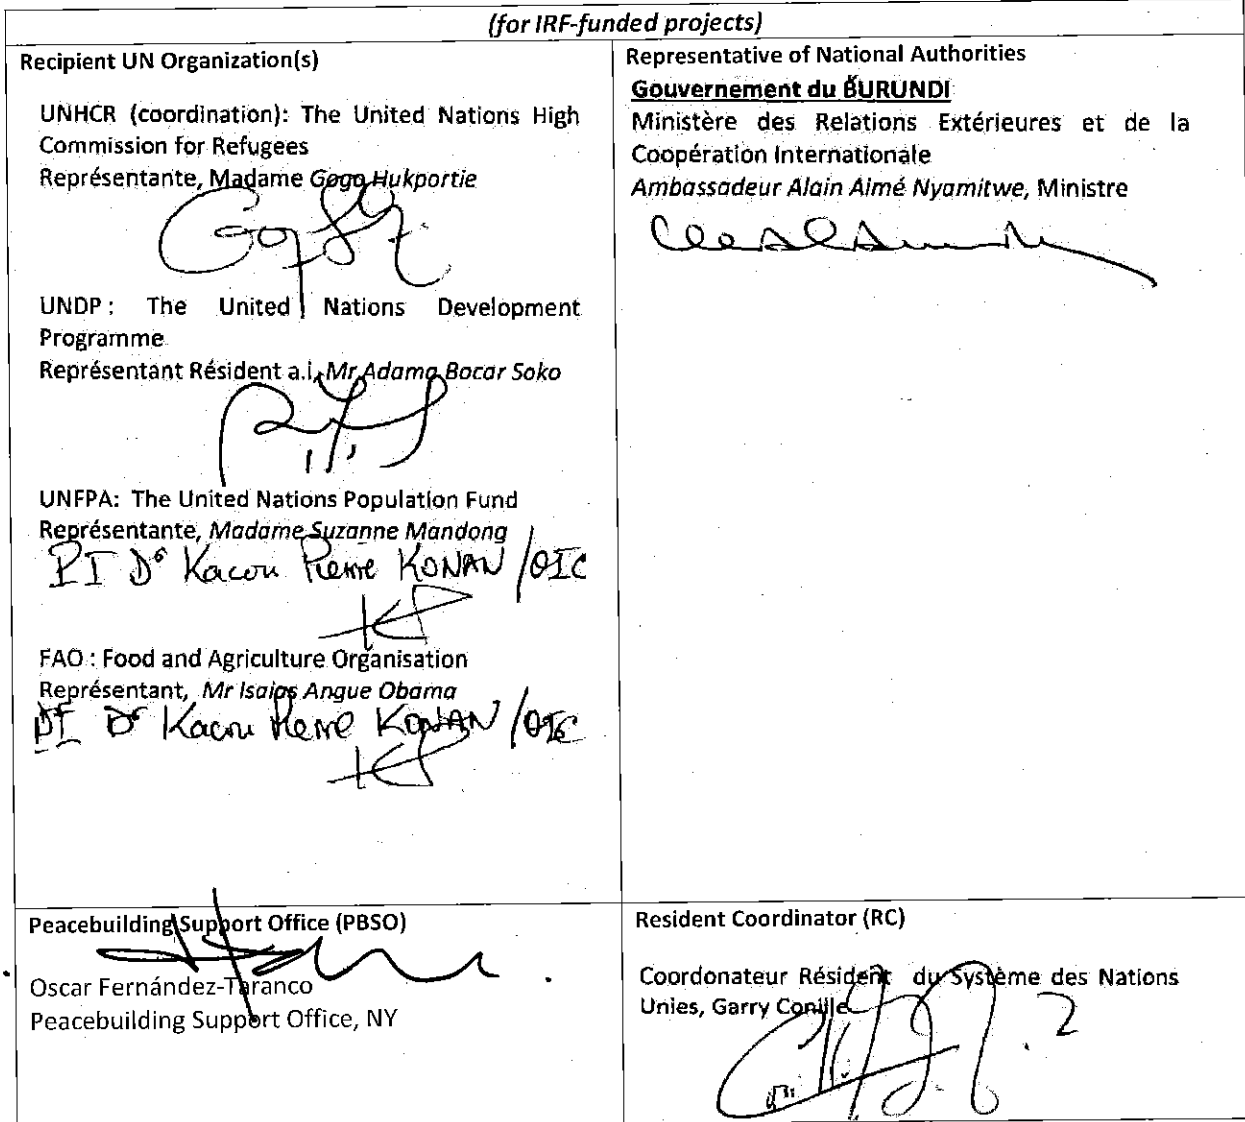 (for IRF-funded projects)
Recipient UN Organization(s)
UNHCR (coordination): The United Nations High
Commission for Refugees
Représentante, Madame Gogo Hukportie
UNDP : The United Nations Development
Programme
Représentant Résident a.i, Mr Adama Bocar Soko
UNFPA: The United Nations Population Fund
Représentante, Madame Suzanne Mandong
PI Dr Kacou Pierre KONAN /OIC
KP
FAO : Food and Agriculture Organisation
Représentant, Mr Isaias Angue Obama
PI Dr Kacou Pierre KONAN /OIC
KP
Representative of National Authorities
Gouvernement du BURUNDI
Ministère des Relations Extérieures et de la
Coopération Internationale
Ambassadeur Alain Aimé Nyamitwe, Ministre
Peacebuilding Support Office (PBSO)
Oscar Fernández-Taranco
Peacebuilding Support Office, NY
Resident Coordinator (RC)
Coordonateur Résident du Système des Nations
Unies, Garry Conille